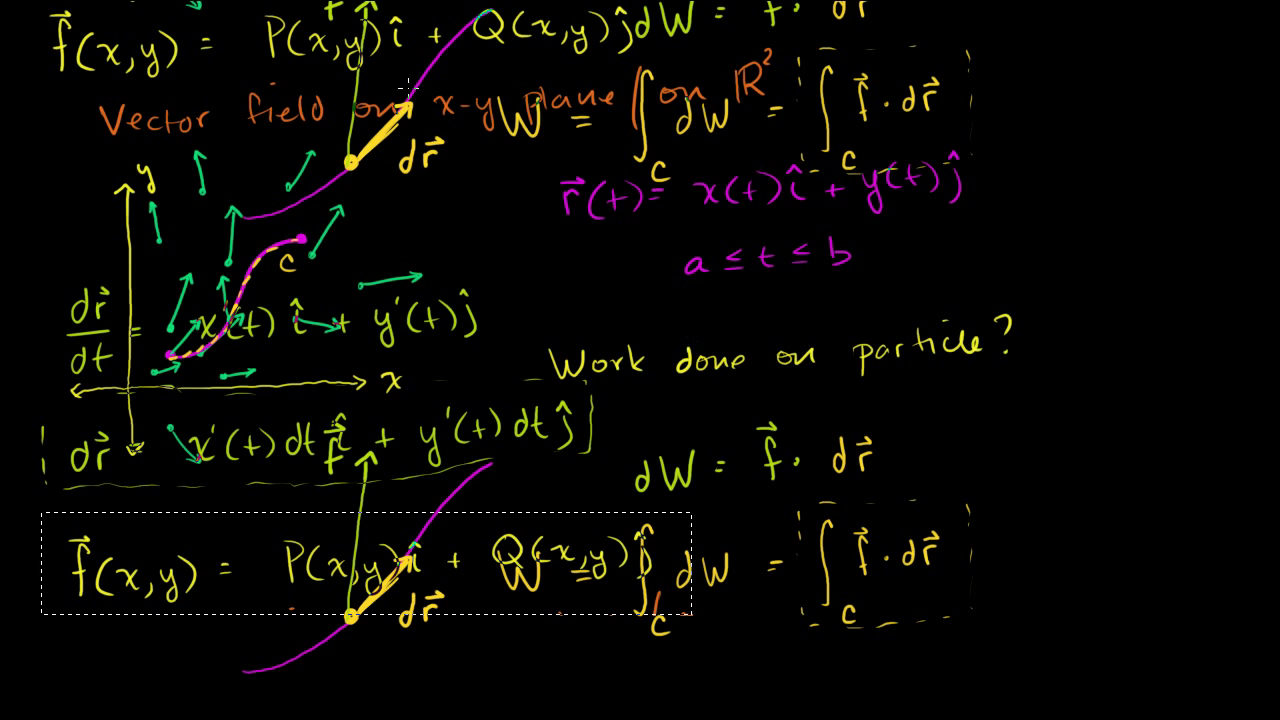 f⃗(x,y) = P(x,y)î + Q(x,y)ĵ dW = f⃗ · dr⃗
Vector field on x-y plane on ℝ²
W = ∫_C dW = ∫_C f⃗ · dr⃗
dr⃗
y
r⃗(t) = x(t)î + y(t)ĵ
a ≤ t ≤ b
C
dr⃗/dt = x'(t) î + y'(t) ĵ
x
Work done on particle?
dr⃗ = x'(t) dt î + y'(t) dt ĵ
f⃗
dW = f⃗ · dr⃗
f⃗(x,y) = P(x,y) î + Q(x,y) ĵ
W = ∫_C dW = ∫_C f⃗ · dr⃗
dr⃗